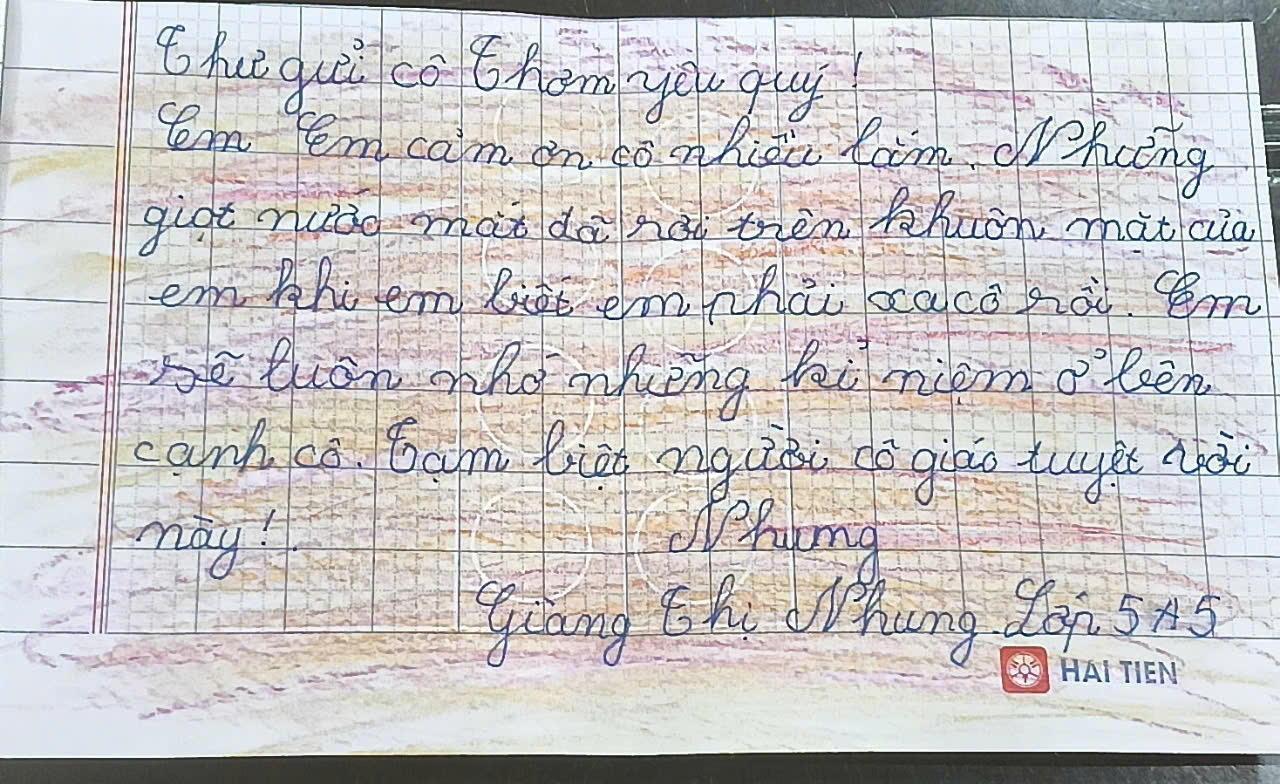 Thư gửi cô Thơm yêu quý!
Em Em cảm ơn cô nhiều lắm. Những
giọt nước mắt đã rơi trên khuôn mặt của
em khi em biết em phải xa cô rồi. Em
sẽ luôn nhớ những kỉ niệm ở bên
cạnh cô. Tạm biệt người cô giáo tuyệt vời
này!
Nhung
Giàng Thị Nhung. Lớp 5A5
HAI TIEN